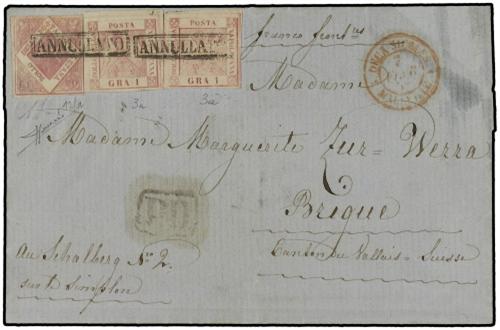 POSTA POSTA
ANNULLATO ANNULLA
GRA 1 GRA 1
franco
Madame
3a 3a
Madame Marguerite Zur=Werra
Brigue
PD
Canton du Vallais - Suisse
Au Schalberg No 2.
sur le Simplon